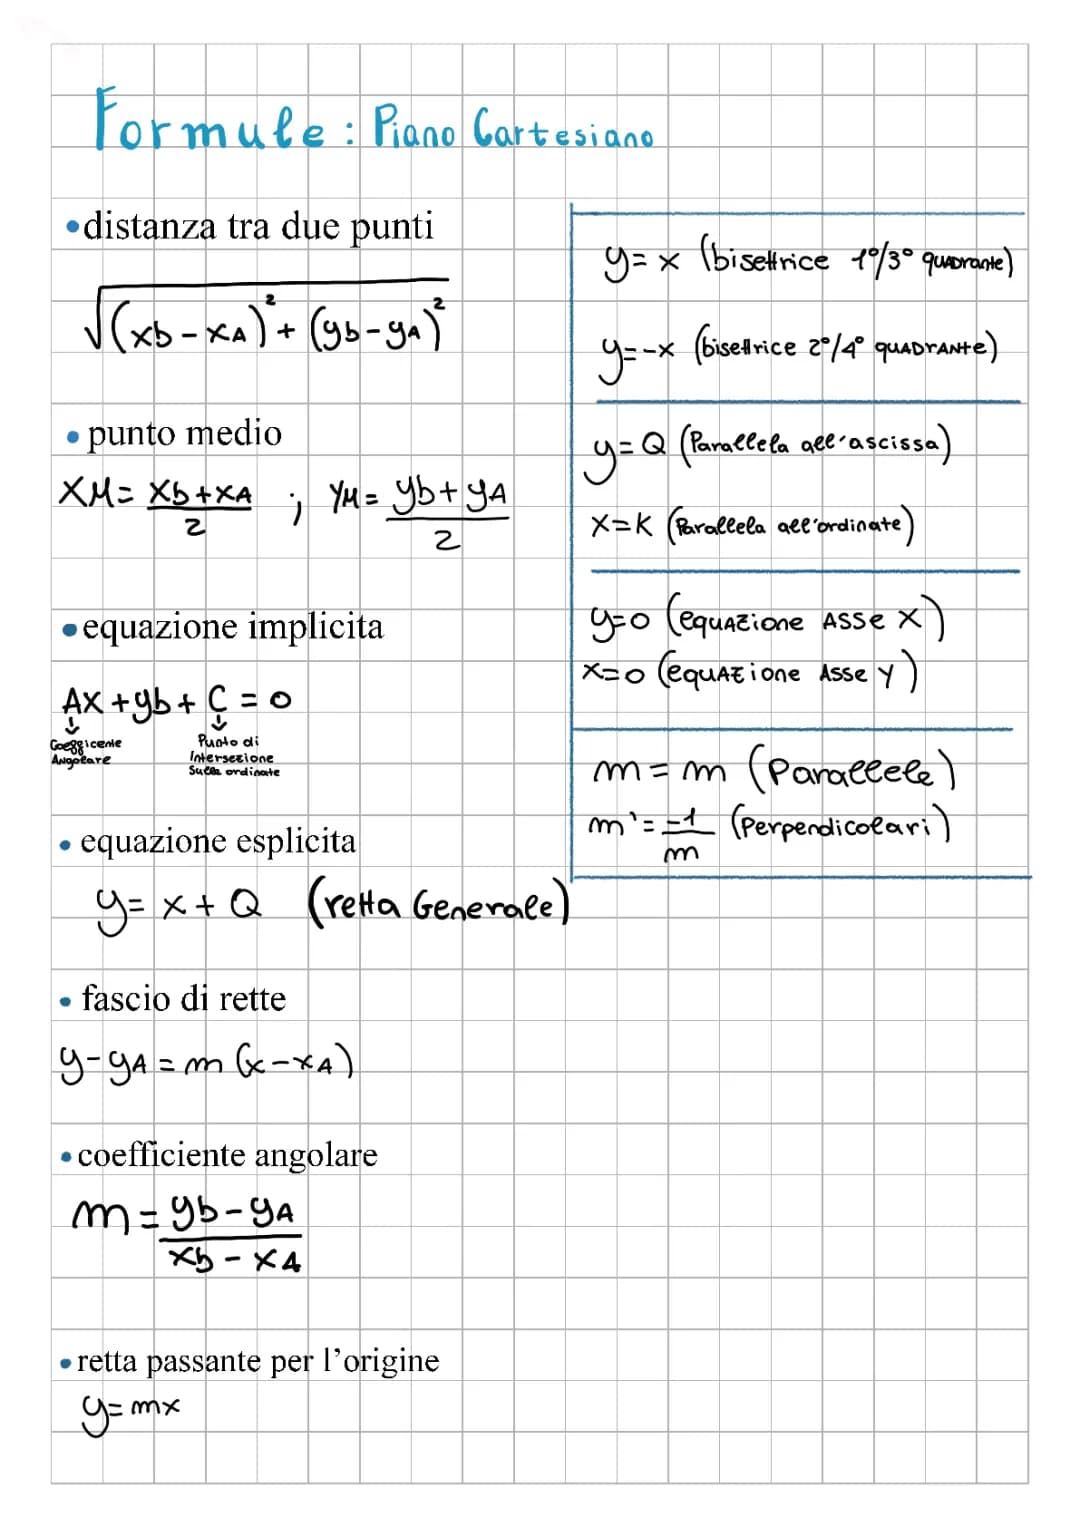 Formule: Piano Cartesiano
•distanza tra due punti
√(xb-xA)²+(yb-yA)²
• punto medio
XM= Xb+XA/2 ; YM= yb+yA/2
•equazione implicita
AX+yb+C=0
↓ ↓
Coefficente Angolare
Punto di Intersezione Sulle ordinate
• equazione esplicita
y=x+Q (retta Generale)
• fascio di rette
y-yA=m(x-xA)
•coefficiente angolare
m= yb-yA/xb-xA
•retta passante per l'origine
y=mx
y=x (bisettrice 1°/3° quadrante)
y=-x (bisettrice 2°/4° quadrante)
y=Q (Parallela all'ascissa)
X=K (Parallela all'ordinate)
y=0 (equazione Asse X)
X=0 (equazione Asse Y)
m=m (Parallele)
m'=-1/m (Perpendicolari)